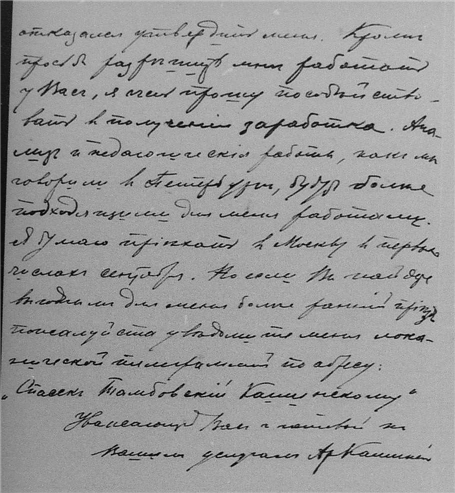 отказался утвердить меня. Кроме
просьбы разрешить мне работать
у Васъ, я и прошу поспособство-
вать въ полученіи заработка. Ана-
лизъ и педагогическія работы, какъ мы
говорили въ Петербургѣ, будутъ болѣе
подходящими для меня работами.
Я думаю пріѣхать въ Москву въ первыхъ
числахъ сентября. Но если Вы найдете
выгоднымъ для меня болѣе ранній пріѣздъ
пожалуйста увѣдомите меня лако-
нической телеграммой по адресу:
„Спасскъ Тамбовскій Кашинскому"
Уважающій Васъ и готовый къ
Вашимъ услугамъ Ар Кашинскій